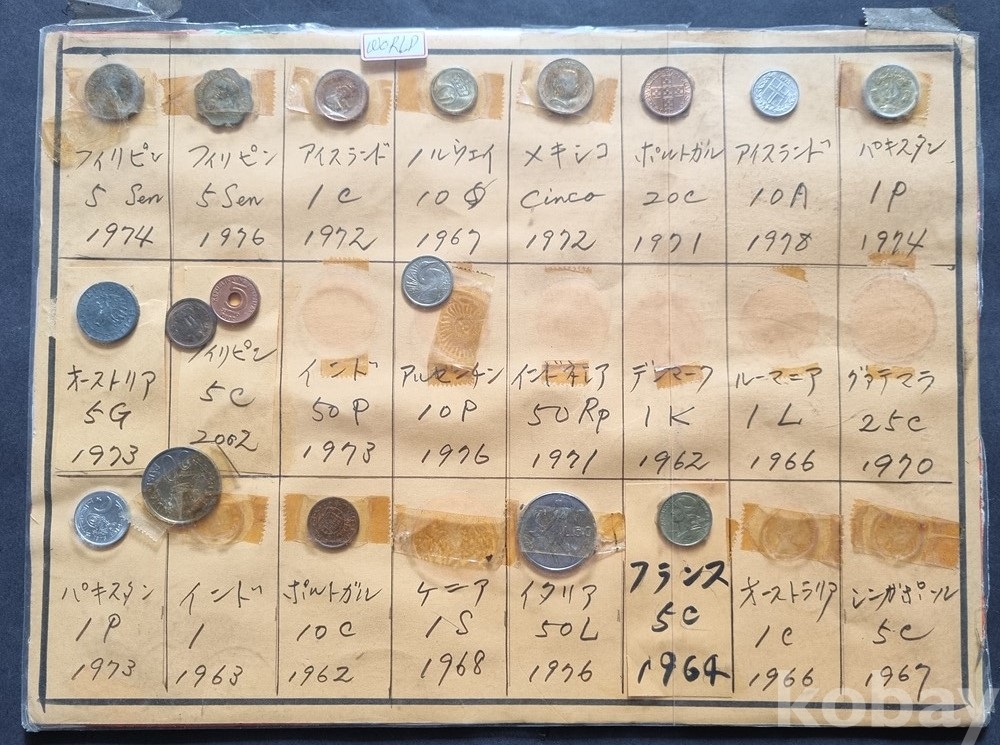 WORLD
フィリピン
5 Sen
1974
フィリピン
5 Sen
1976
アイスランド
1 C
1972
ノルウェイ
10 Φ
1967
メキシコ
Cinco
1972
ポルトガル
20C
1971
アイスランド
10A
1978
パキスタン
1P
1974
オーストリア
5G
1973
フィリピン
5C
2002
インド
50P
1973
アルゼンチン
10P
1976
インドネシア
50Rp
1971
デンマーク
1K
1962
ルーマニア
1L
1966
グァテマラ
25C
1970
パキスタン
1P
1973
インド
1
1963
ポルトガル
10C
1962
ケニア
1S
1968
イタリア
50L
1976
フランス
5C
1964
オーストラリア
1C
1966
シンガポール
5C
1967
kobay